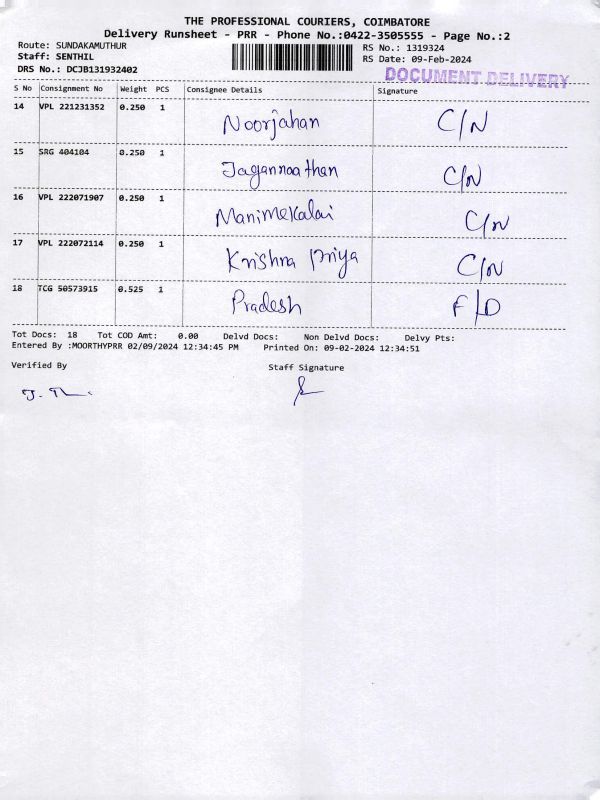 THE PROFESSIONAL COURIERS, COIMBATORE
Delivery Runsheet - PRR - Phone No.:0422-3505555 - Page No.:2
Route: SUNDAKAMUTHUR RS No.: 1319324
Staff: SENTHIL RS Date: 09-Feb-2024
DRS No.: DCJB131932402 DOCUMENT DELIVERY
S No Consignment No Weight PCS Consignee Details Signature
14 VPL 221231352 0.250 1 Noorjahan C/N
15 SRG 404104 0.250 1 Jagannaathan C/N
16 VPL 222071907 0.250 1 Manimekalai C/N
17 VPL 222072114 0.250 1 Krishna Priya C/N
18 TCG 50573915 0.525 1 Pradesh F/D
Tot Docs: 18 Tot COD Amt: 0.00 Delvd Docs: Non Delvd Docs: Delvy Pts:
Entered By :MOORTHYPRR 02/09/2024 12:34:45 PM Printed On: 09-02-2024 12:34:51
Verified By Staff Signature